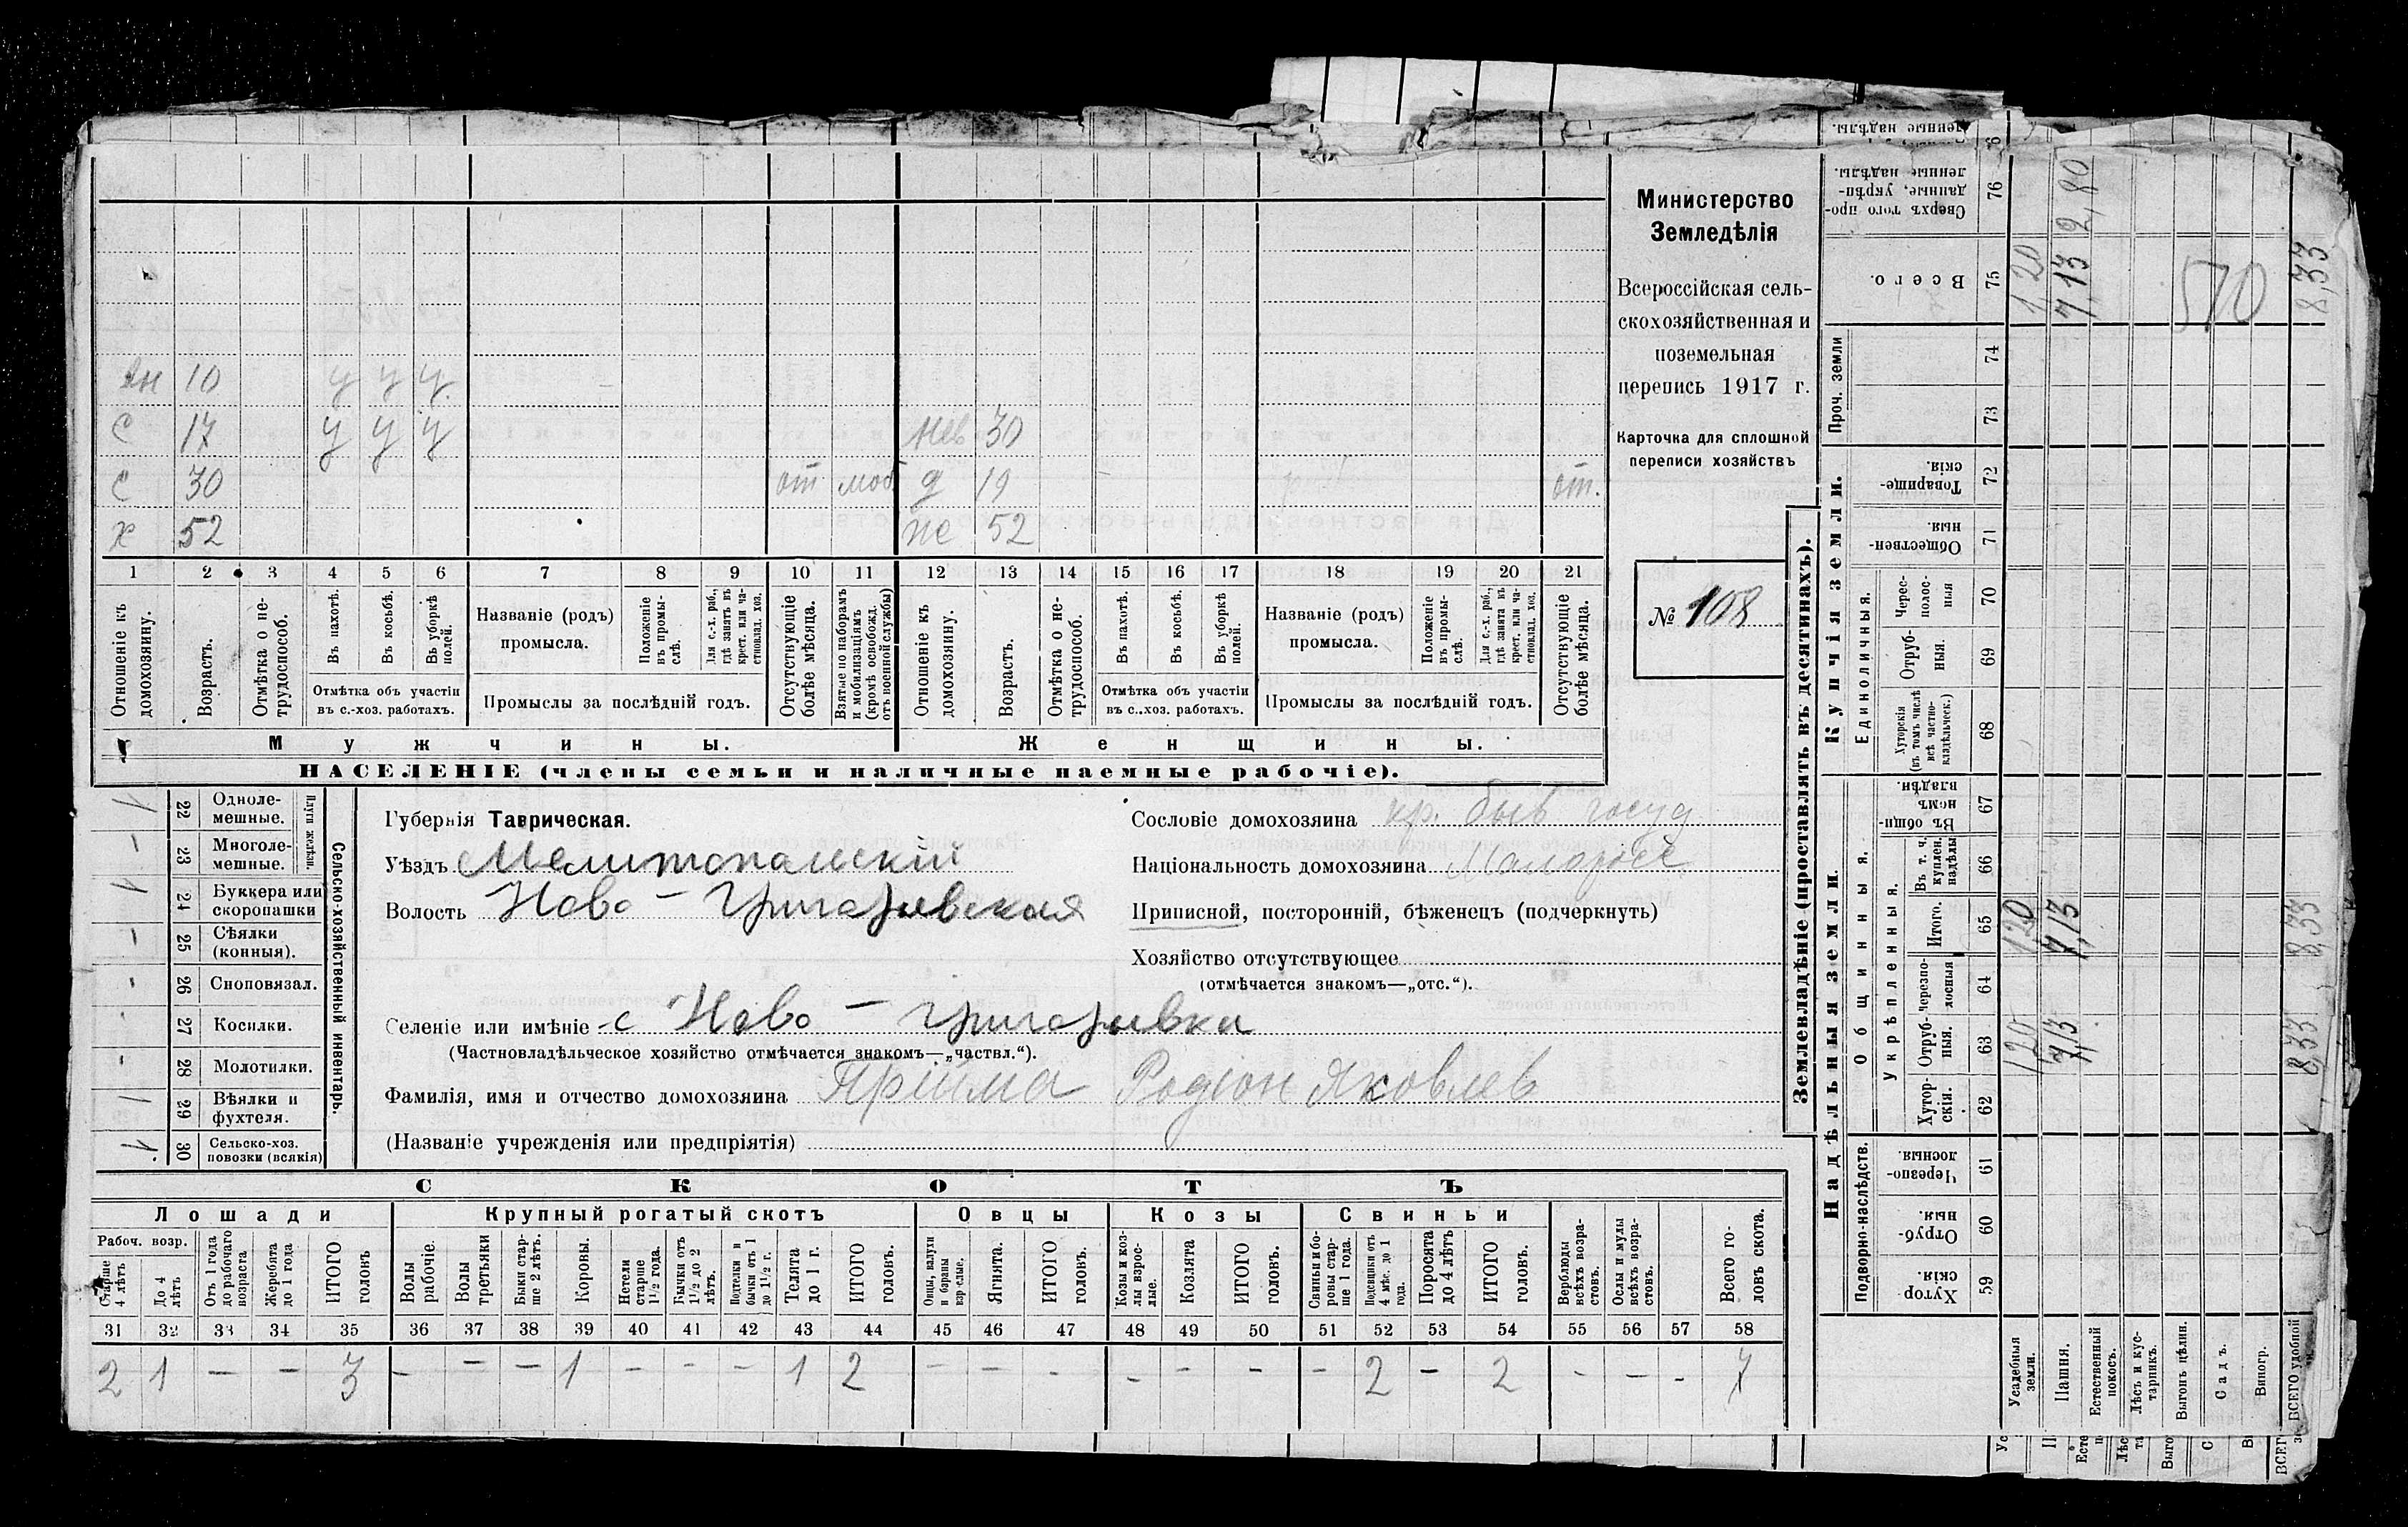 Министерство
Земледѣлія
Всероссійская сель-
скохозяйственная и
поземельная
перепись 1917 г.
Карточка для сплошной
переписи хозяйствъ
№ 108
10 у у у
с 17 у у у нев 30
с 30 от моб д 19 от.
х 52 же 52
1 2 3 4 5 6 7 8 9 10 11 12 13 14 15 16 17 18 19 20 21
Отношеніе къ домохозяину.
Возрастъ.
Отмѣтка о не-трудоспособ.
Въ пахотѣ.
Въ косьбѣ.
Въ уборкѣ полей.
Отмѣтка объ участіи
въ с.-хоз. работахъ.
Названіе (родъ)
промысла.
Положеніе въ промы-слѣ.
Для с.-х. раб., гдѣ занятъ въ крест. или ча-стновлад. хоз.
Промыслы за послѣдній годъ.
Отсутствующіе болѣе мѣсяца.
Взятые по наборамъ и мобилизаціямъ (кромѣ освобожд. отъ военной службы)
Отношеніе къ домохозяину.
Возрастъ.
Отмѣтка о не-трудоспособ.
Въ пахотѣ.
Въ косьбѣ.
Въ уборкѣ полей.
Отмѣтка объ участіи
въ с..хоз. работахъ.
Названіе (родъ)
промысла.
Положеніе въ промы-слѣ.
Для с.-х. раб., гдѣ занята въ крест. или ча-стновлад. хоз.
Промыслы за послѣдній годъ.
Отсутствующіе болѣе мѣсяца.
Мужчины. Женщины.
НАСЕЛЕНІЕ (члены семьи и наличные наемные рабочіе).
Сельско-хозяйственный инвентарь.
Плуги желѣзн.
1 22 Одноле-мешные.
- 23 Многоле-мешные.
1 24 Буккера или скоропашки
- 25 Сѣялки (конныя).
- 26 Сноповязал.
- 27 Косилки.
- 28 Молотилки.
1 29 Вѣялки и фухтеля.
1 30 Сельско-хоз. повозки (всякія)
Губернія Таврическая.
Уѣздъ Мелитопольскій
Волость Ново-Григорьевская
Сословіе домохозяина кр. быв госуд
Національность домохозяина Малоросс
Приписной, посторонній, бѣженецъ (подчеркнуть)
Хозяйство отсутствующее
(отмѣчается знакомъ—„отс.“).
Селеніе или имѣніе с Ново-Григорьевка
(Частновладѣльческое хозяйство отмѣчается знакомъ—„частвл.“).
Фамилія, имя и отчество домохозяина Прійма Родіон Яковлев
(Названіе учрежденія или предпріятія)
СКОТЪ
Лошади Крупный рогатый скотъ Овцы Козы Свиньи
Рабоч. возр.
Старше 4 лѣтъ
До 4 лѣтъ
Отъ 1 года до рабочаго возраста
Жеребята до 1 года
ИТОГО головъ
Волы рабочіе.
Волы третьяки
Быки стар-ше 2 лѣтъ.
Коровы.
Нетели старше 1½ года.
Бычки отъ 1½ до 2 лѣтъ.
Подтелки и бычки отъ 1 до 1½ г.
Телята до 1 г.
ИТОГО головъ.
Овцы, валухи и бараны взрослые.
Ягнята.
ИТОГО головъ.
Козы и коз-лы взрос-лые.
Козлята
ИТОГО головъ.
Свиньи и бо-ровы стар-ше 1 года.
Подсвинки отъ 4 мѣс. до 1 года.
Поросята до 4 лѣтъ
ИТОГО головъ.
Верблюды всѣхъ возра-стовъ.
Ослы и мулы всѣхъ возра-стовъ.
Всего го-ловъ скота.
31 32 33 34 35 36 37 38 39 40 41 42 43 44 45 46 47 48 49 50 51 52 53 54 55 56 57 58
2 1 - - 3 - - - 1 - - - 1 2 - - - - - - - 2 - 2 - - - 7
Землевладѣніе (проставлять въ десятинахъ).
Купчія земли.
Надѣльныя земли.
Проч. земли
Единоличныя.
Общинныя.
Укрѣпленныя.
Подворно-наслѣдств.
Сверхъ того про-данные, укрѣп-ленные надѣлы. 76
Всего. 75
74
73
Товарище-скія. 72
Обществен-ныя 71
Черес-полос-ныя 70
Отруб-ныя. 69
Хуторскія (въ томъ числѣ всѣ частно-владѣльческ.) 68
Въ общин-номъ владѣн. 67
Въ т. ч. куплен. надѣлы 66
Итого. 65
Черезпо-лосныя 64
Отруб-ныя. 63
Хутор-скія. 62
Черезпо-лосныя. 61
Отруб-ныя. 60
Хутор-скія. 59
Усадебныя земли. 1,20 1,20 1,20
Пашня. 7,13 7,13 7,13 2,80
Естественный покосъ.
Лѣсъ и кус-тарникъ.
Выгонъ цѣлин.
Садъ.
Виногр.
570
ВСЕГО удобной 8,33 8,33 8,33